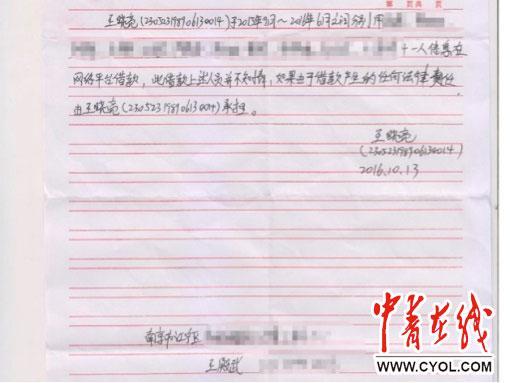 第 页共 页
王晓亮(230523198906130014)于2015年9月～2016年6月26日分别用
十一人信息在
网络平台借款,此借款上述人员并不知情,如果由于借款产生的任何法律责任
由王晓亮(230523198906130014)承担。
王晓亮
(230523198906130014)
2016.10.13
南京市江宁区
王殿武
中青在线
WWW.CYOL.COM